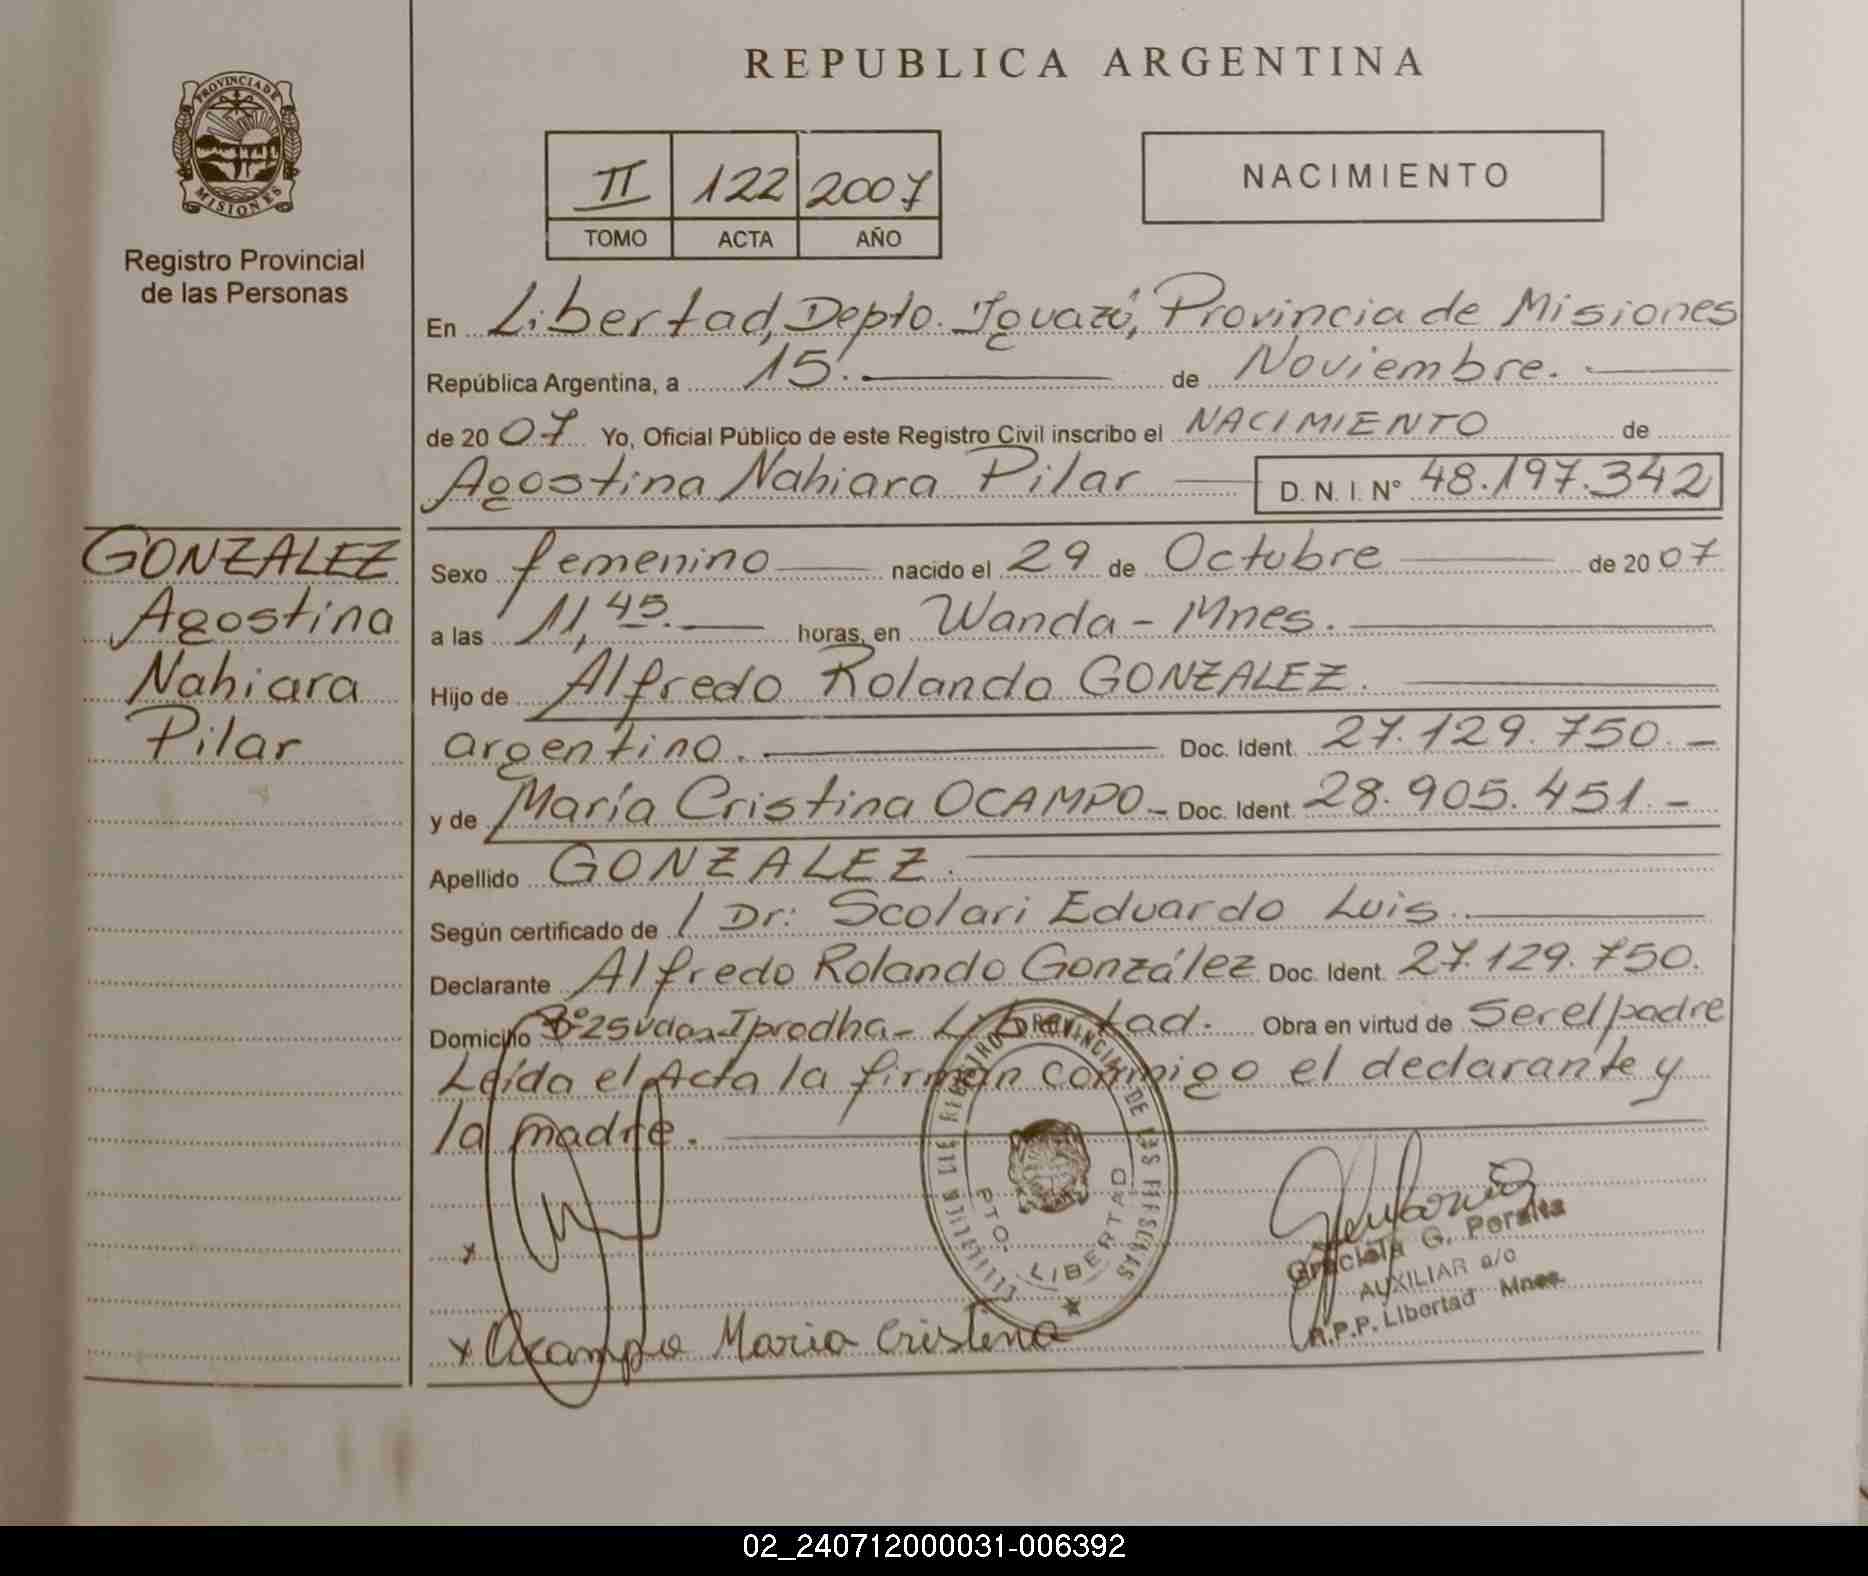 REPUBLICA ARGENTINA
PROVINCIA DE
MISIONES
Registro Provincial
de las Personas
II 122 2007
TOMO ACTA AÑO
NACIMIENTO
En Libertad, Depto. Iguazú, Provincia de Misiones
República Argentina, a 15. de Noviembre.
de 20 07 Yo, Oficial Público de este Registro Civil inscribo el NACIMIENTO de
Agostina Nahiara Pilar D. N. I. N° 48.197.342
GONZALEZ
Agostina
Nahiara
Pilar
Sexo femenino nacido el 29 de Octubre de 20 07
a las 11,45. horas, en Wanda - Mnes.
Hijo de Alfredo Rolando GONZALEZ.
argentino. Doc. Ident. 27.129.750.-
y de María Cristina OCAMPO- Doc. Ident. 28.905.451.-
Apellido GONZALEZ.
Según certificado de / Dr: Scolari Eduardo Luis.
Declarante Alfredo Rolando González Doc. Ident. 27.129.750.
Domicilio B° 25 Vdas Iprodha- Libertad. Obra en virtud de Ser el padre
Leída el Acta la firman conmigo el declarante y
la madre.
REGISTRO PROVINCIAL DE LAS PERSONAS
PTO. LIBERTAD
x
x Ocampo Maria Cristina
Graciela G. Peralta
AUXILIAR a/c
R.P.P. Libertad Mnes.
02_240712000031-006392